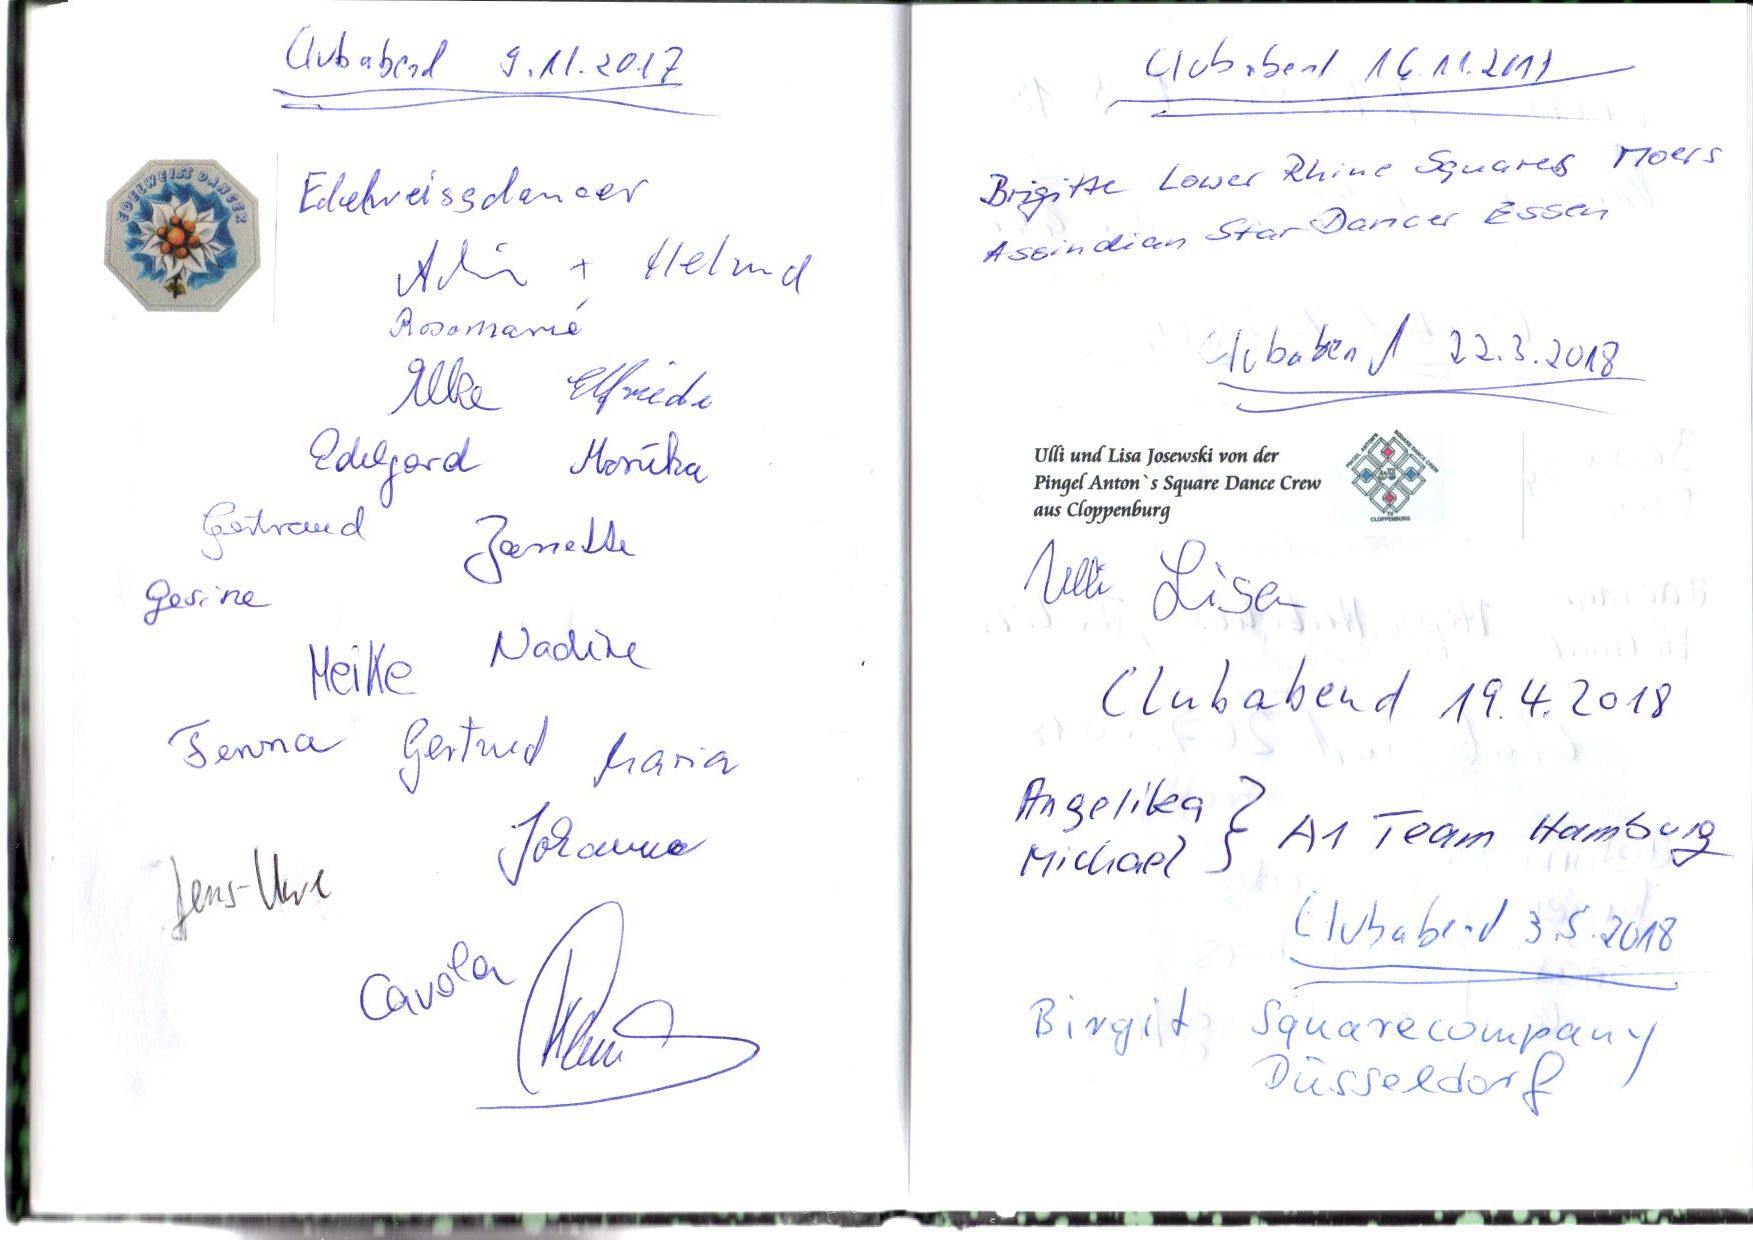 Clubabend 9.11.2017
EDELWEISS DANCER
Edelweissdancer
+ Helmud
Rosemarie
Elke Elfriede
Edelgard Monika
Gertraud Janette
Gesine
Meike Nadine
Fenna Gertrud Maria
Johanna
Jens-Uwe
Carola
Clubabend 16.11.2017
Brigitte Lower Rhine Squares Moers
Assindian Star Dancer Essen
Clubabend 22.3.2018
Ulli und Lisa Josewski von der
Pingel Anton`s Square Dance Crew
aus Cloppenburg
PINGEL ANTON'S SQUARE DANCE CREW
TV
CLOPPENBURG
Ulli Lisa
Clubabend 19.4.2018
Angelika
Michael } A1 Team Hamburg
Clubabend 3.5.2018
Birgit Squarecompany
Düsseldorf